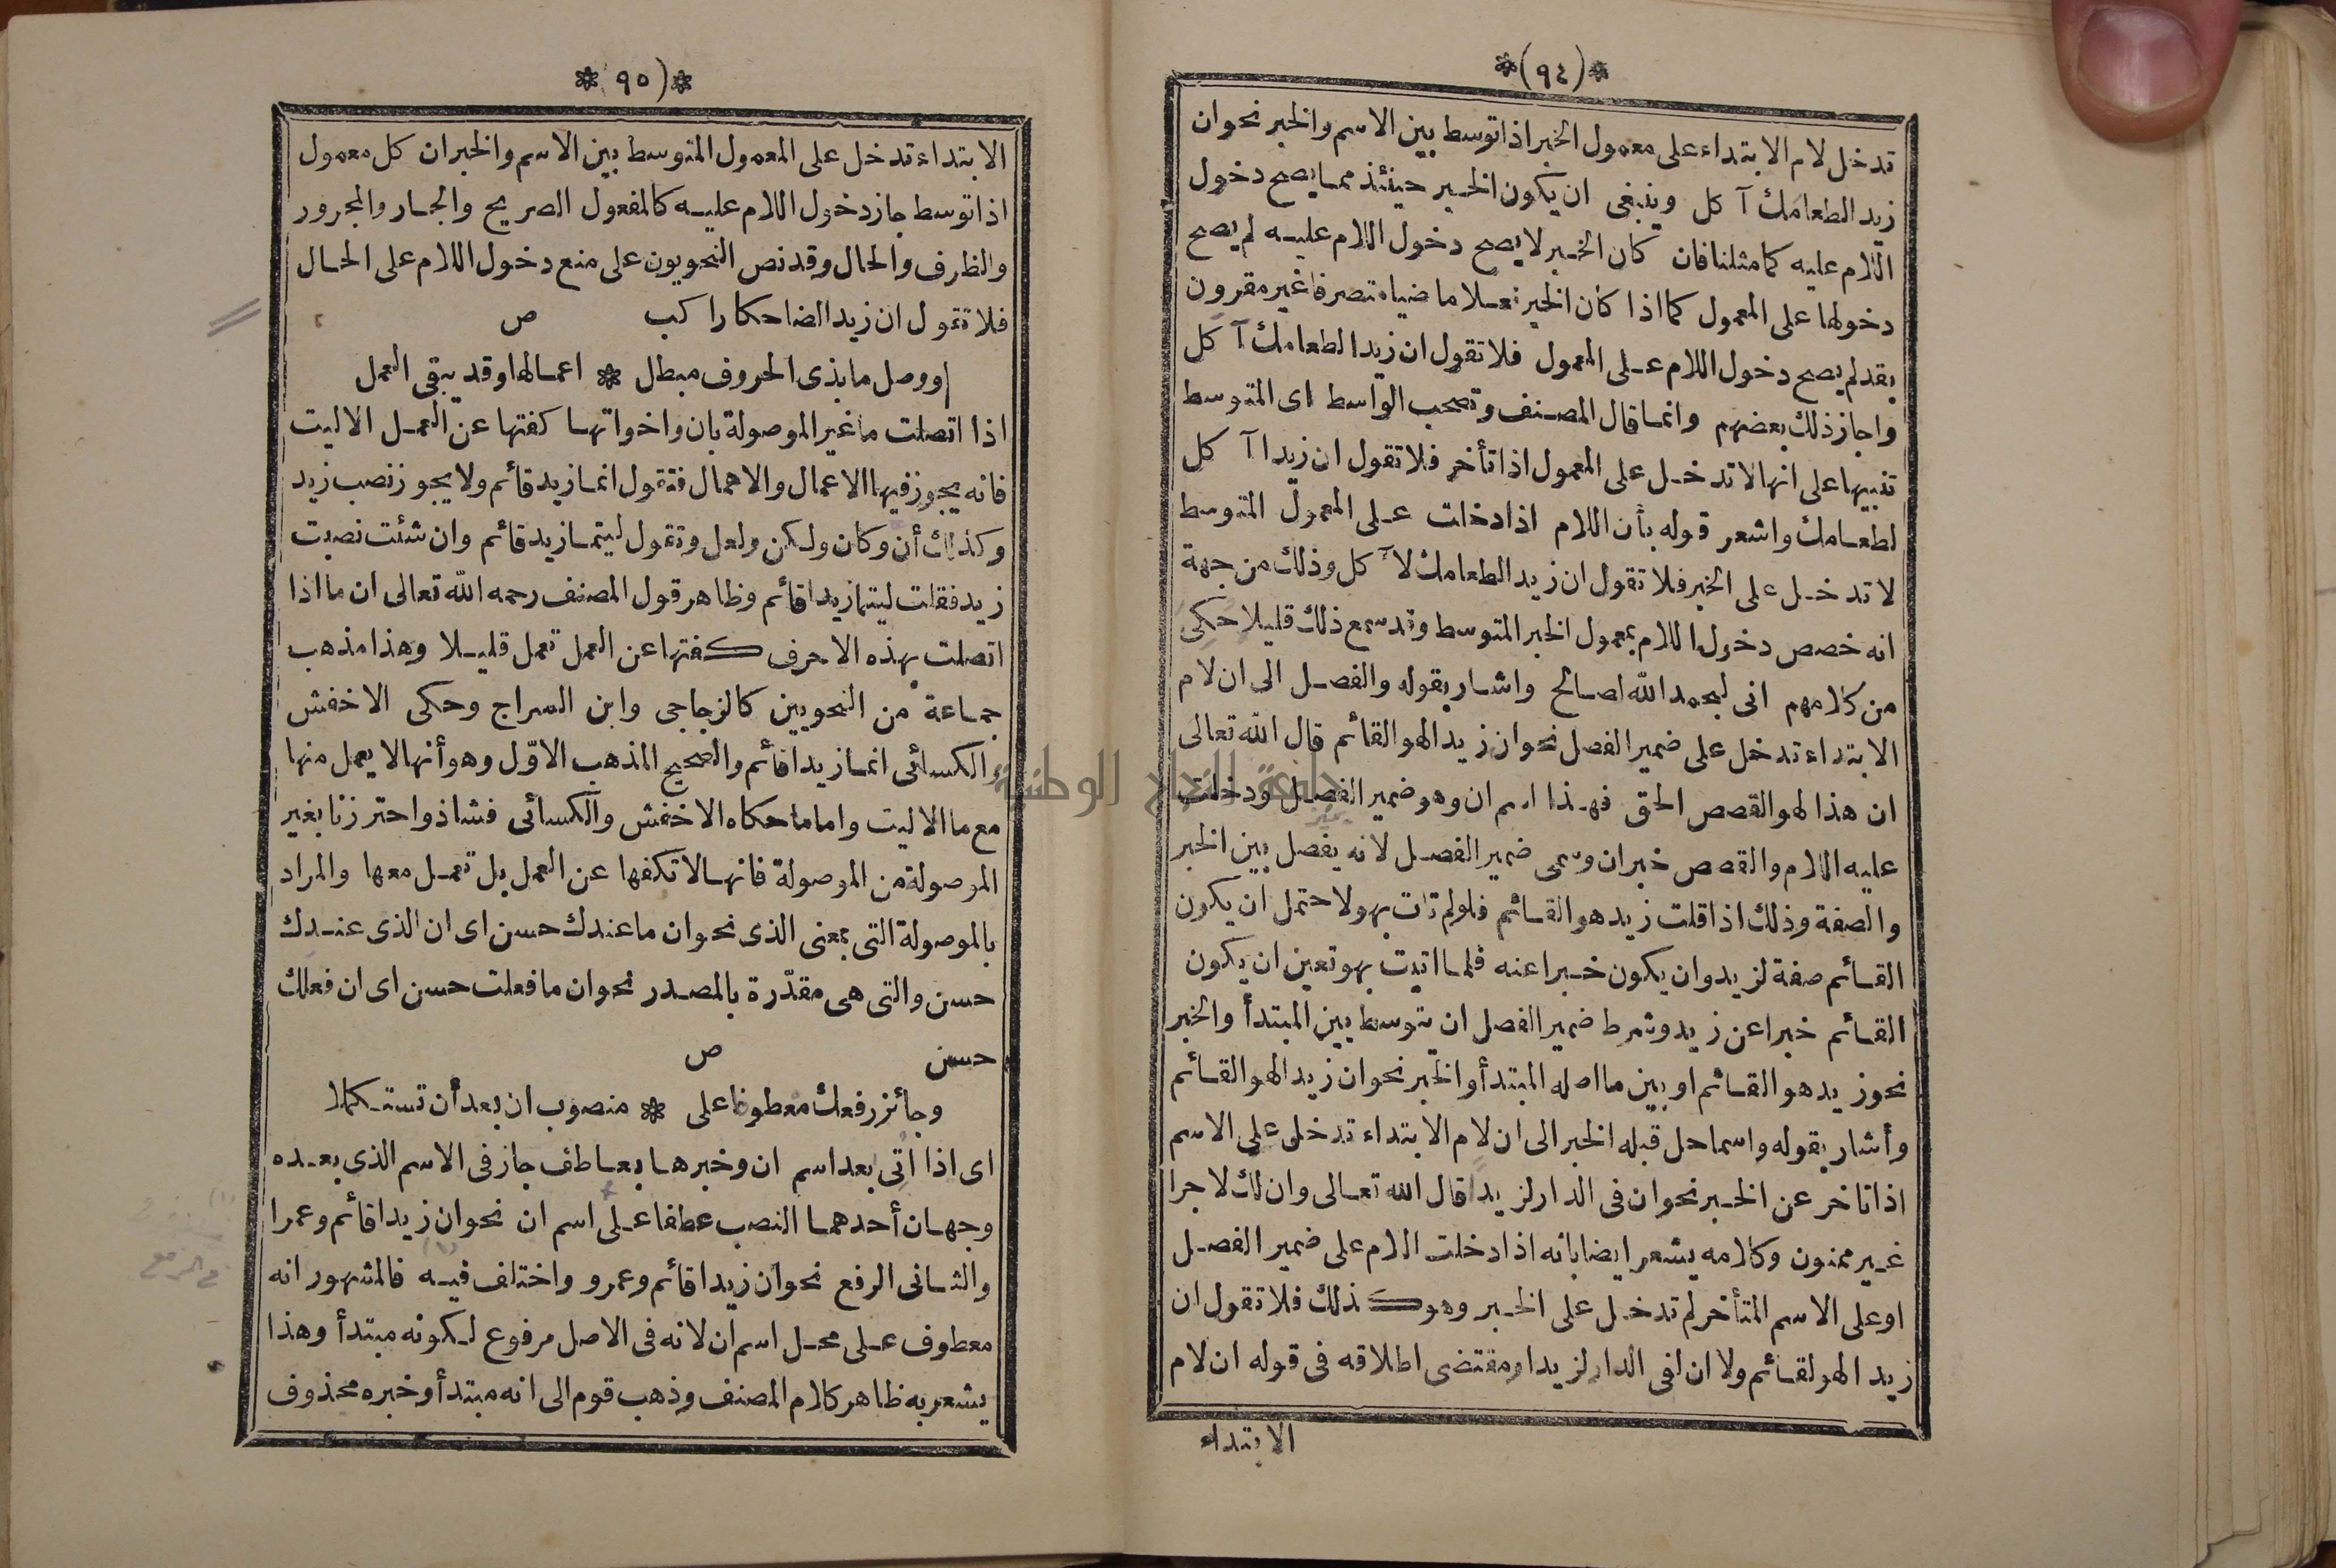 *(٩٤)*
تدخل لام الابتداء على معمول الخبر اذا توسط بين الاسم والخبر نحو ان
زيد الطعامك آكل وينبغى ان يكون الخبر حينئذ مما يصح دخول
اللام عليه كما مثلنا فان كان الخبر لا يصح دخول اللام عليه لم يصح
دخولها على المعمول كما اذا كان الخبر فعلا ماضيا متصرفا غير مقرون
بقد لم يصح دخول اللام على المعمول فلا تقول ان زيدا لطعامك آكل
واجاز ذلك بعضهم وانما قال المصنف وتصحب الواسط اى المتوسط
تنبيها على انها لا تدخل على المعمول اذا تأخر فلا تقول ان زيدا آكل
لطعامك واشعر قوله بأن اللام اذا دخلت على المعمول المتوسط
لا تدخل على الخبر فلا تقول ان زيدا لطعامك لآكل وذلك من جهة
انه خصص دخول اللام بمعمول الخبر المتوسط وقد سمع ذلك قليلا حكى
من كلامهم انى لبحمد الله لصالح واشار بقوله والفصل الى ان لام
الابتداء تدخل على ضمير الفصل نحو ان زيدا لهو القائم قال الله تعالى
ان هذا لهو القصص الحق فهذا اسم ان وهو ضمير الفصل ودخلت
عليه اللام والقصص خبر ان وسمى ضمير الفصل لانه يفصل بين الخبر
والصفة وذلك اذا قلت زيد هو القائم فلو لم تات بهو لاحتمل ان يكون
القائم صفة لزيد وان يكون خبرا عنه فلما اتيت بهو تعين ان يكون
القائم خبرا عن زيد وشرط ضمير الفصل ان يتوسط بين المبتدأ والخبر
نحو زيد هو القائم او بين ما اصله المبتدأ والخبر نحو ان زيدا لهو القائم
وأشار بقوله واسما حل قبله الخبر الى ان لام الابتداء تدخل على الاسم
اذا تاخر عن الخبر نحو ان فى الدار لزيدا قال الله تعالى وان لك لاجرا
غير ممنون وكلامه يشعر ايضا بانه اذا دخلت اللام على ضمير الفصل
او على الاسم المتأخر لم تدخل على الخبر وهو كذلك فلا تقول ان
زيدا لهو لقائم ولا ان لفى الدار لزيدا ومقتضى اطلاقه فى قوله ان لام
الابتداء
*(٩٥ *
الابتداء تدخل على المعمول المتوسط بين الاسم والخبر ان كل معمول
اذا توسط جاز دخول اللام عليه كالمفعول الصريح والجار والمجرور
والظرف والحال وقد نص النحويون على منع دخول اللام على الحال
فلا تقول ان زيدا لضاحكا راكب ص
ووصل ما بذى الحروف مبطل * اعمالها وقد يبقى العمل
اذا اتصلت ما غير الموصولة بان واخواتها كفتها عن العمل الا ليت
فانه يجوز فيها الاعمال والاهمال فتقول انما زيد قائم ولا يجوز نصب زيد
وكذلك أن وكان ولكن ولعل وتقول ليتما زيد قائم وان شئت نصبت
زيد فقلت ليتما زيدا قائم وظاهر قول المصنف رحمه الله تعالى ان ما اذا
اتصلت بهذه الاحرف كفتها عن العمل تعمل قليلا وهذا مذهب
جماعة من النحويين كالزجاجى وابن السراج وحكى الاخفش
والكسائى انما زيدا قائم والصحيح المذهب الاوّل وهو أنها لا يعمل منها
مع ما الا ليت واما ما حكاه الاخفش والكسائى فشاذ واحترزنا بغير
الموصولة من الموصولة فانها لا تكفها عن العمل بل تعمل معها والمراد
بالموصولة التى بمعنى الذى نحو ان ما عندك حسن اى ان الذى عندك
حسن والتى هى مقدّرة بالمصدر نحو ان ما فعلت حسن اى ان فعلك
حسن ص
وجائز رفعك معطوفا على * منصوب ان بعد أن تستكملا
اى اذا اتى بعد اسم ان وخبرها بعاطف جاز فى الاسم الذى بعده
وجهان أحدهما النصب عطفا على اسم ان نحو ان زيدا قائم وعمرا
والثانى الرفع نحو ان زيدا قائم وعمرو واختلف فيه فالمشهور انه
معطوف على محل اسم ان لانه فى الاصل مرفوع لكونه مبتدأ وهذا
يشعر به ظاهر كلام المصنف وذهب قوم الى انه مبتدأ وخبره محذوف
جامعة النجاح الوطنية